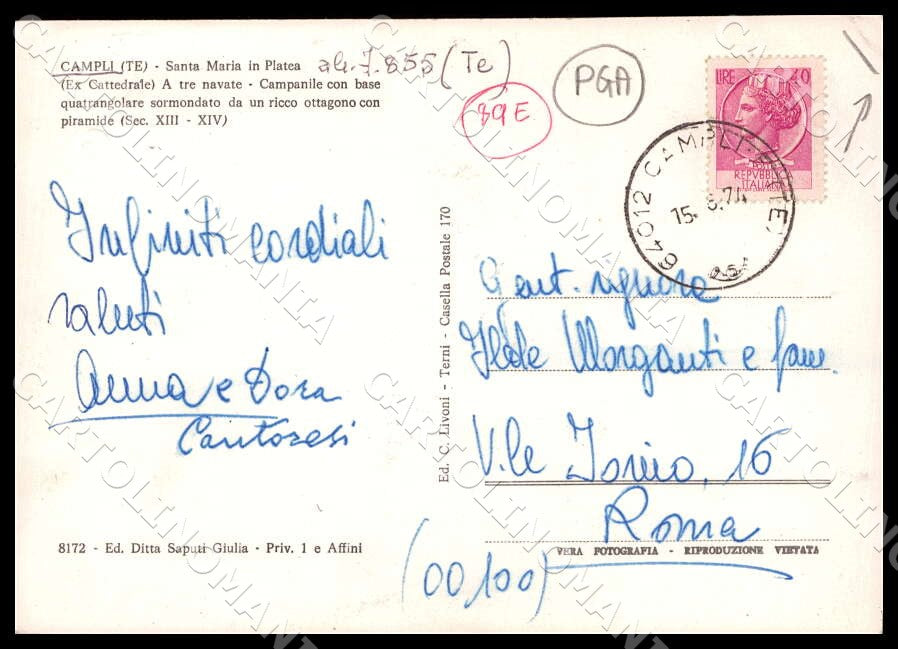 CAMPLI (TE) - Santa Maria in Platea
(Ex Cattedrale) A tre navate - Campanile con base
quatrangolare sormondato da un ricco ottagono con
piramide (Sec. XIII - XIV)
ab. 7.855 (Te)
89E
PGA
LIRE 40
POSTE
REPVBBLICA
ITALIANA
64012 CAMPLI (TE)
15. 8.74
Infiniti cordiali
saluti
Anna e Dora
Cantoresi
Ed. C. Livoni - Terni - Casella Postale 170
Gent. signora
Ilde Morganti e fam.
V.le Ionio, 16
Roma
(00100)
8172 - Ed. Ditta Saputi Giulia - Priv. 1 e Affini
VERA FOTOGRAFIA - RIPRODUZIONE VIETATA
CARTOLINOMANIA